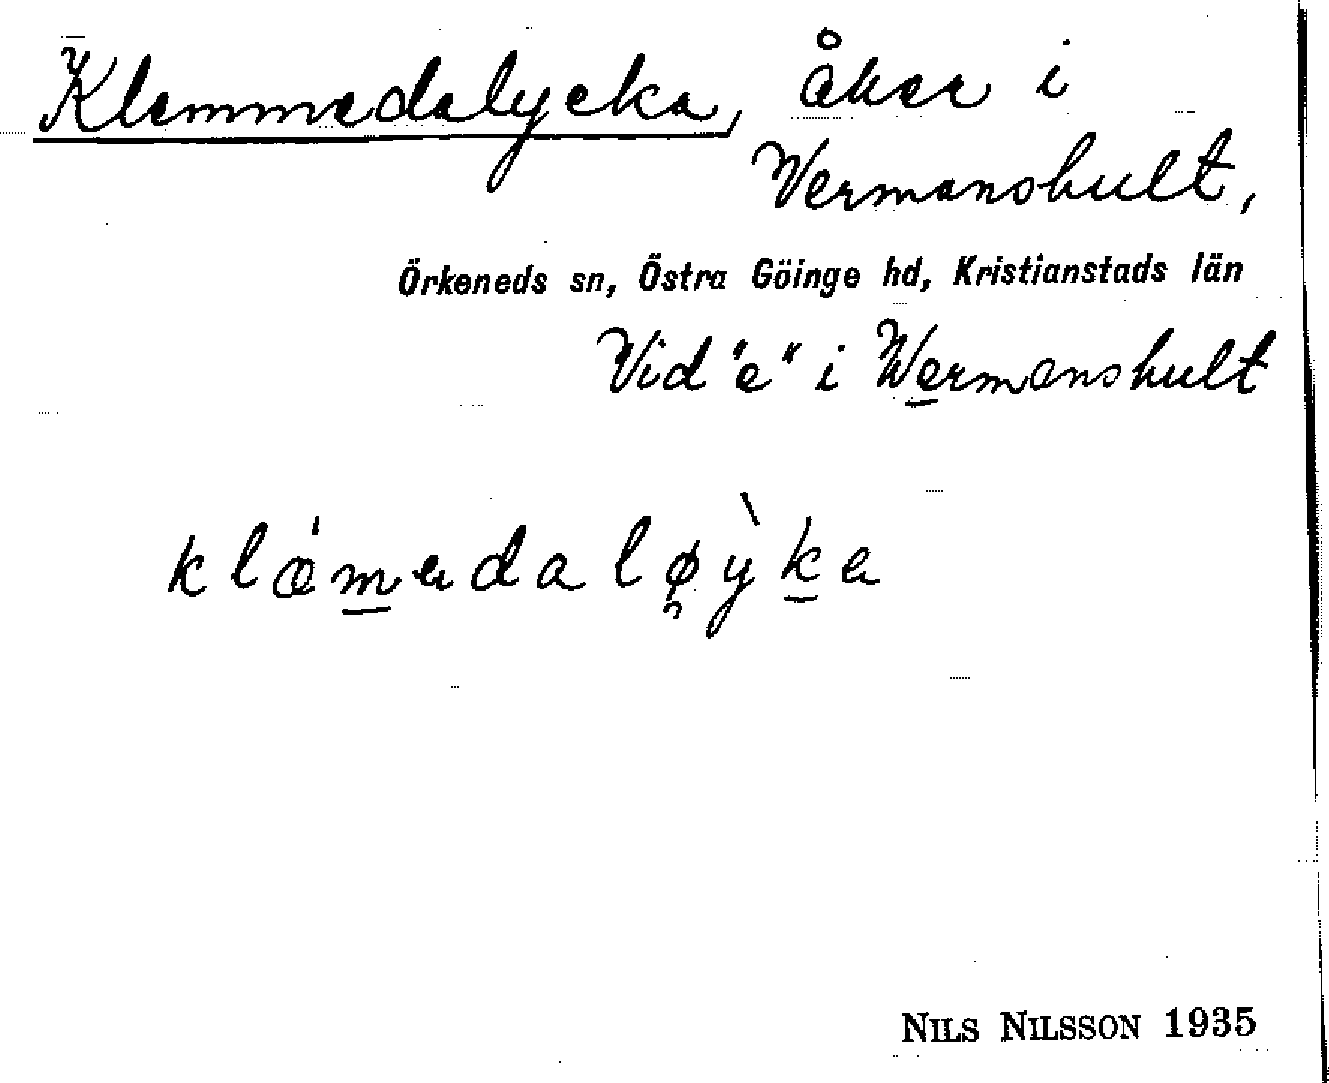 Klemmedalycka, åker i
Vermanshult,
Örkeneds sn, Östra Göinge hd, Kristianstads län
Vid "e" i Wermanshult
klæ̀medaløẏ̀ka
NILS NILSSON 1935